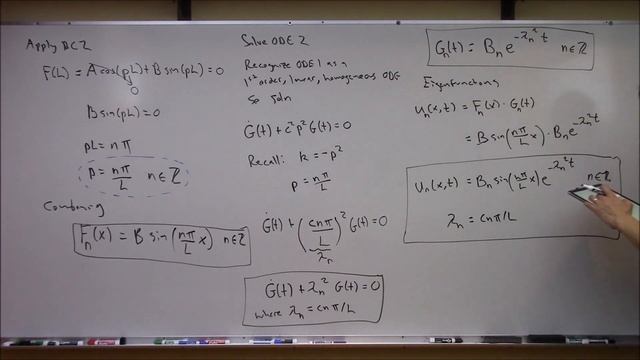 Apply BC2
F(L) = A cos(pL) + B sin(pL) = 0
0
B sin(pL) = 0
pL = nπ
p = nπ/L n∈ℤ
Combining
Fₙ(x) = B sin(nπ/L x) n∈ℤ
Solve ODE 2
Recognize ODE 1 as a
1st order, linear, homogeneous ODE
so soln
Ġ(t) + c²p² G(t) = 0
Recall: k = -p²
p = nπ/L
Ġ(t) + (cnπ/L)² G(t) = 0
λₙ
Ġ(t) + λₙ² G(t) = 0
where λₙ = cnπ/L
Gₙ(t) = Bₙ e^(-λₙ² t) n∈ℤ
Eigenfunctions
uₙ(x,t) = Fₙ(x) · Gₙ(t)
= B sin(nπ/L x) · Bₙ e^(-λₙ² t)
uₙ(x,t) = Bₙ sin(nπ/L x) e^(-λₙ² t) n∈ℤ
λₙ = cnπ/L